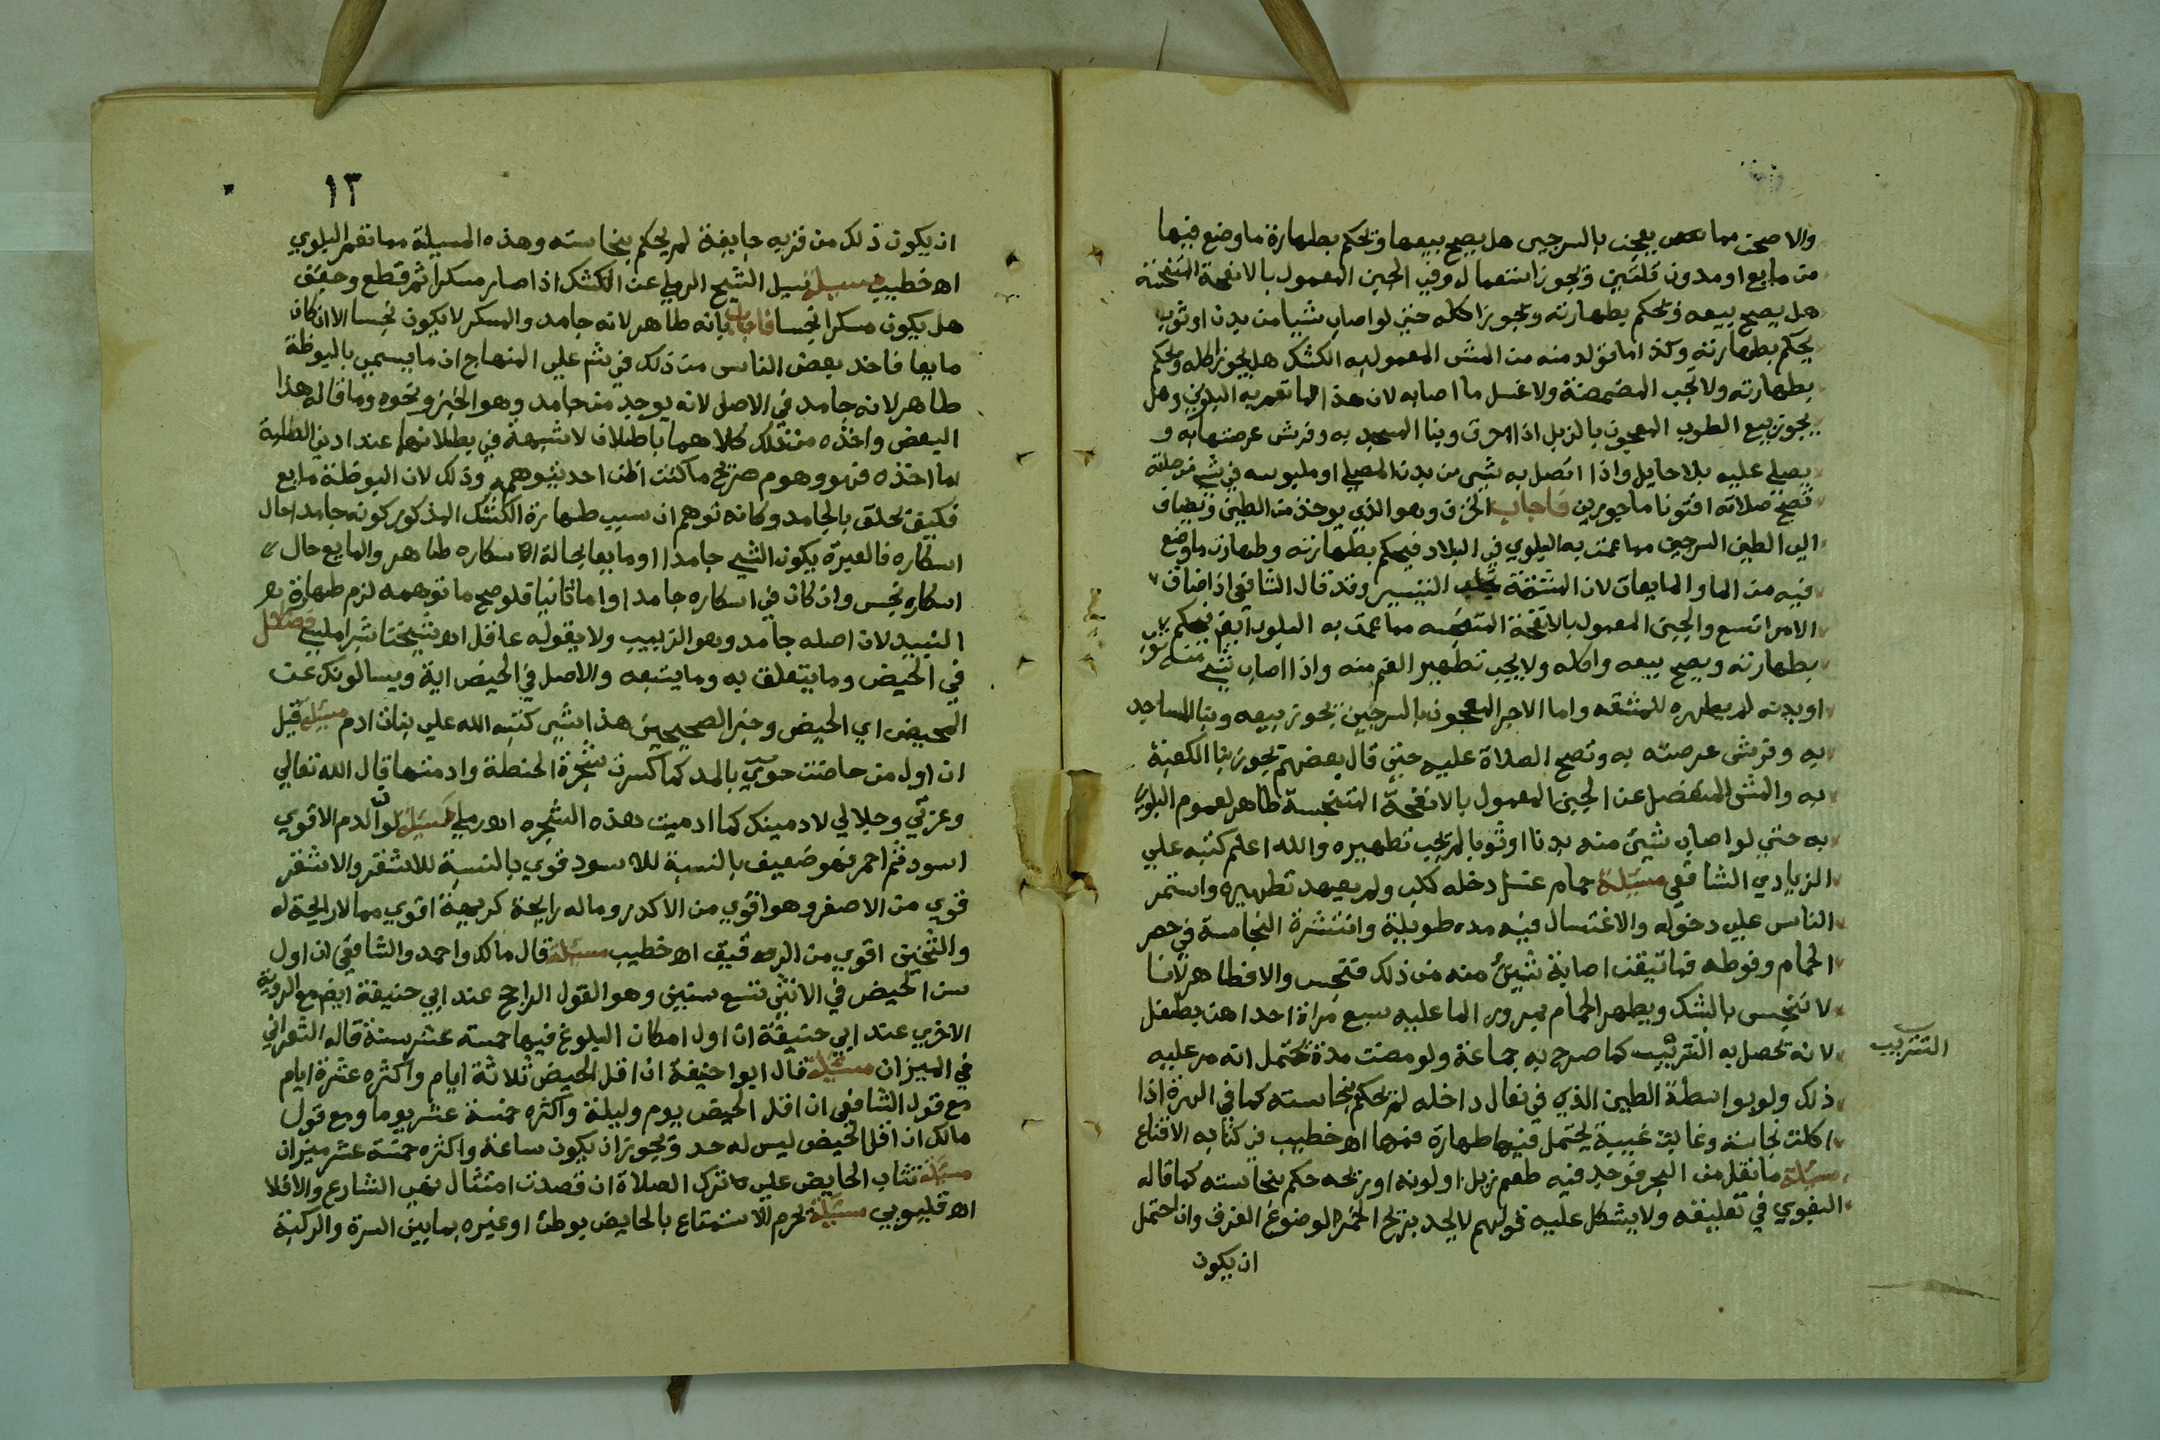 والاصحن مما يعجن بالسرجين هل يصح بيعها ويحكم بطهارة ما وضع فيها
من مايع او مدون قلتين ويجوز استعماله وفي الجبن المعمول بالانفحة المتنجسة
هل يصح بيعه ويحكم بطهارته ويجوز اكله حتي لو اصاب شيا من بدن او ثوب
يحكم بطهارته وكذا ما تولد منه من المش المعمول به الكشك هل يجوز اكله ويحكم
بطهارته ولا تجب المضمضة ولا غسل ما اصابه لان هذا مما تعم به البلوي وهل
يجوز بيع الطوب المعجون بالزبل اذا احرق وبنا المسجد به وفرش عرصتها به و
يصلي عليه بلا حايل واذا اتصل به شي من بدن المصلي او ملبوسه في شي من صلاته
تصح صلاته افتونا ماجورين فاجاب الخزف وهو الذي يوخذ من الطين ويضاف
الي الطين السرجين مما عمت به البلوي في البلاد فيحكم بطهارته وطهارة ما وضع
فيه من الما والمايعات لان المشقة تجلب التيسير وقد قال الشافعي اذا ضاق
الامر اتسع والجبن المعمول بالانفحة المتنجسه مما عمت به البلوي ايضا فيحكم
بطهارته ويصح بيعه واكله ولا يجب تطهير الفم منه واذا اصاب شي منه ثوب
او بدنه لم يطهره للمشقه واما الاجر المعجون بالسرجين يجوز بيعه وبنا المساجد
به وفرش عرصته به وتصح الصلاة عليه حتي قال بعضهم يجوز بنا الكعبة
به والمش المنفصل عن الجبن المعمول بالانفحة المتنجسة طاهر لعموم البلوي
به حتي لو اصاب شيئ منه بدنا او ثوبا لم يجب تطهيره والله اعلم كتبه علي
الزيادي الشافعي مسئلة حمام غسل دخله كلب ولم يعهد تطهيره واستمر
الناس علي دخوله والاغتسال فيه مده طويلة وانتشرة النجاسة في حصر
الحمام وفوطه فما تيقن اصابة شيئ منه من ذلك فنجس والا فطاهر لاننا
لا ننجس بالشك ويطهر الحمام بمرور الما عليه سبع مراة احداهن بطفل
لانه تحصل به التتريب كما صرح به جماعة ولو مضت مدة يحتمل انه مر عليه
التتريب
ذلك ولو بواسطة الطين الذي في نعال داخله لم يحكم بنجاسته كما في الهرة اذا
اكلت نجاسة وغابت غيبة يحتمل فيها طهارة فمها اه خطيب في كتابه الاقناع
مسئلة ما نقل من البحر فوجد فيه طعم زبل او لونه او ريحه حكم بنجاسته كما قاله
البغوي في تعليقه ولا يشكل عليه قولهم لا يحد بريح الخمر لوضوح الفرق وان احتمل
ان يكون
١٣
ان يكون ذلك من قربه جايفة لم يحكم بنجاسته وهذه المسيلة مما تعم البلوي
اه خطيب مسيلة سيل الشيخ الرملي عن الكشك اذا صار مسكرا ثم قطع وجفف
هل يكون مسكرا نجسا فاجاب بانه طاهر لانه جامد والمسكر لا يكون نجسا الا ان كان
مايعا فاخذ بعض الناس من ذلك في شم علي المنهاج ان ما يسمي بالبوظة
طاهر لانه جامد في الاصل لانه يوجد من جامد وهو الخبز ونحوه وما قاله هذا
البعض واخذه من ذلك كلاهما باطلان لا شبهة في بطلانهما عند ادني الطلبة
بما اخذه فهو وهوم صريح ما كنت اظن احد يتوهمه وذلك لان البوظة مايع
فكيف تلحق بالجامد وكانه توهم ان سبب طهارة الكشك المذكور كونه جامدا حال
اسكاره فالعبرة بكون الشي جامدا او مايعا بحالة الاسكاره طاهر والمايع حال
اسكاره نجس وان كان في اسكاره جامدا واما ثانيا فلو صح ما توهمه لزم طهارة
النبيذ لان اصله جامد وهو الزبيب ولا يقوله عاقل اه شيخنا شبراملسي فصل
في الحيض وما يتعلق به وما يتبعه والاصل في الحيض اية ويسالونك عن
المحيض اي الحيض وخبر الصحيحين هذا شي كتبه الله علي بنات ادم مسئلة قيل
ان اول من حاضت حوي بالمد كما كسرت شجرة الحنطة وادمتها قال الله تعالي
وعزتي وجلالي لادمينك كما ادميت هذه الشجره اه رملي مسئلة لوان الدم الاقوي
اسود ثم احمر فهو ضعيف بالنسبة للاسود قوي بالنسبة للاشقر والاشقر
قوي من الاصفر وهو اقوي من الاكدر وما له رايحة كريهة اقوي مما لا رايحة له
والثخين اقوي من الرقيق اه خطيب مسئلة قال مالك واحمد والشافعي ان اول
سن الحيض في الانثي تسع سنين وهو القول الراجح عند ابي حنيفة ايضا مع الرواية
الاخري عند ابي حنيفة ان اول امكان البلوغ فيها خمسه عشر سنة قاله الشعراني
في الميزان مسئلة قال ابو احنيفة ان اقل الحيض ثلاثة ايام واكثره عشرة ايام
مع قول الشافعي ان اقل الحيض يوم وليلة واكثره خمسة عشر يوما ومع قول
مالك ان اقل الحيض ليس له حد ويجوز ان يكون ساعة واكثره خمسة عشر ميزان
مسئلة تثاب الحايض علي ترك الصلاة ان قصدت امتثال نهي الشارع والا فلا
اه قليوبي مسئلة يحرم الاستمتاع بالحايض بوطئ او غيره بما بين السرة والركبة